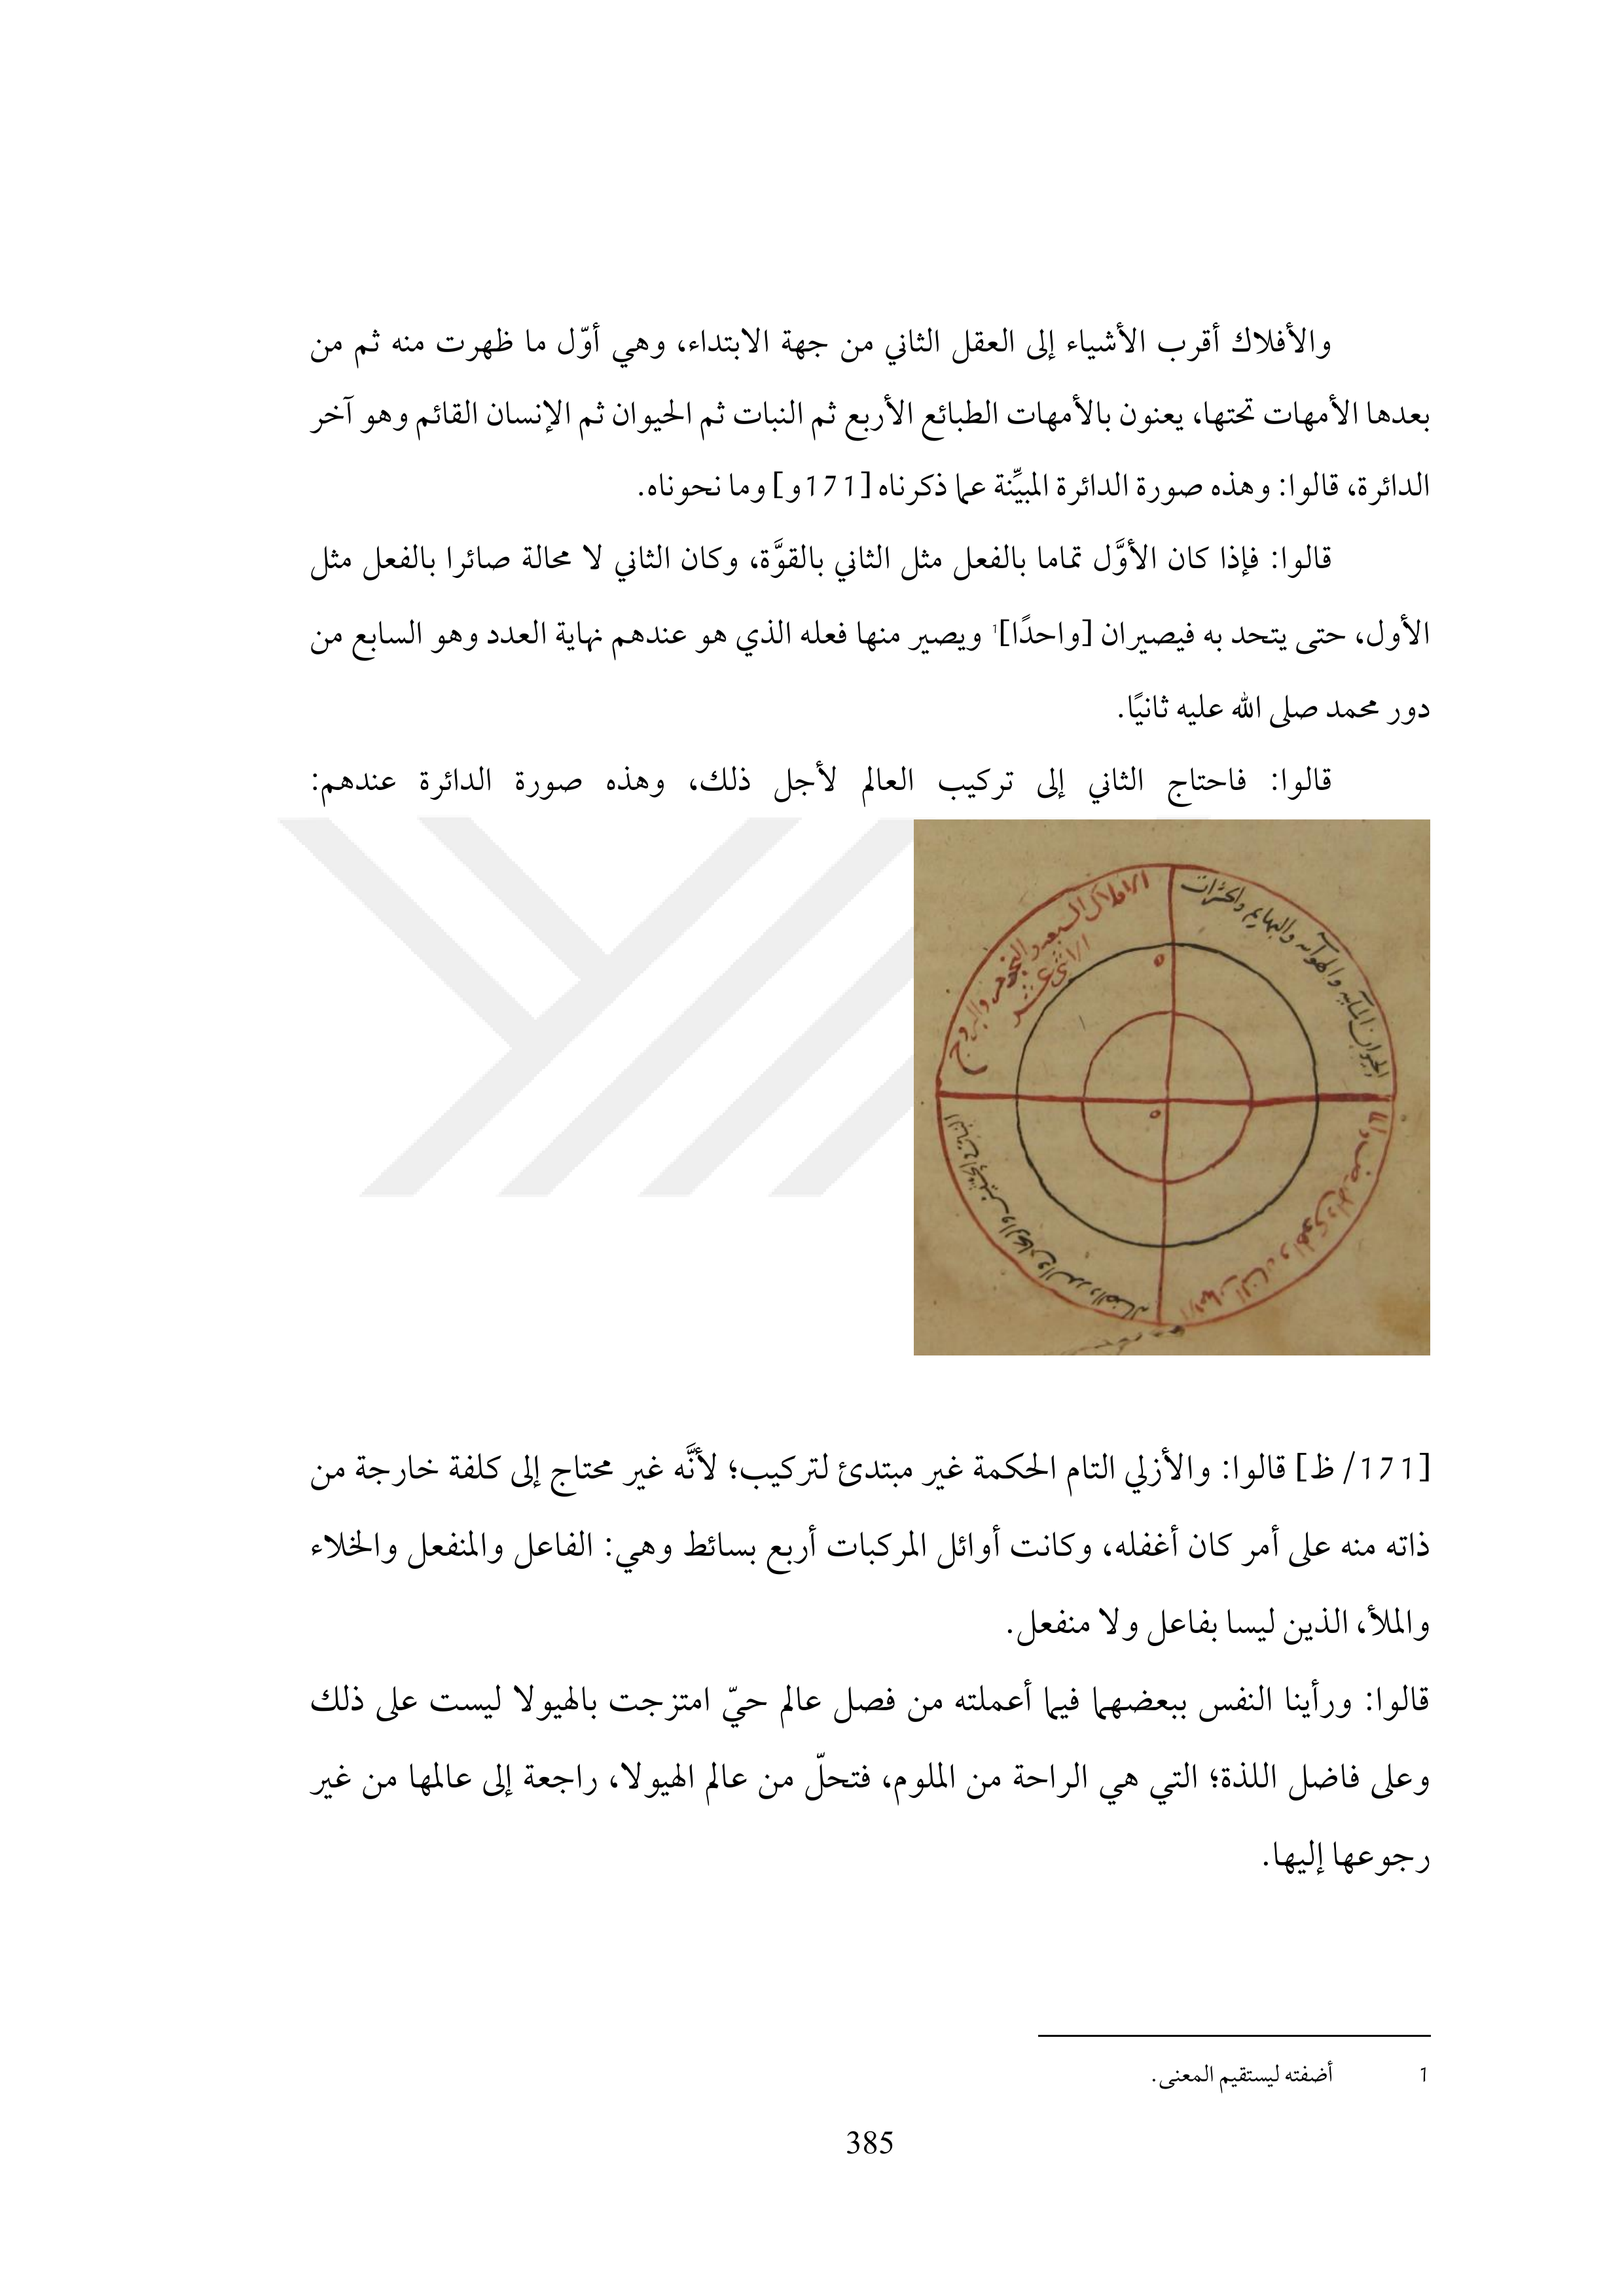 والأفلاك أقرب الأشياء إلى العقل الثاني من جهة الابتداء، وهي أوّل ما ظهرت منه ثم من
بعدها الأمهات تحتها، يعنون بالأمهات الطبائع الأربع ثم النبات ثم الحيوان ثم الإنسان القائم وهو آخر
الدائرة، قالوا: وهذه صورة الدائرة المبيِّنة عما ذكرناه [171و] وما نحوناه.
قالوا: فإذا كان الأوَّل تماما بالفعل مثل الثاني بالقوَّة، وكان الثاني لا محالة صائرا بالفعل مثل
الأول، حتى يتحد به فيصيران [واحدًا]1 ويصير منها فعله الذي هو عندهم نهاية العدد وهو السابع من
دور محمد صلى الله عليه ثانيًا.
قالوا: فاحتاج الثاني إلى تركيب العالم لأجل ذلك، وهذه صورة الدائرة عندهم:
الافلاك السبعه والنجوم والبروج
الاثنى عشر
الحيوان المائيه والهوائيه والبهايم والحشرات
[171/ ظ] قالوا: والأزلي التام الحكمة غير مبتدئ لتركيب؛ لأنَّه غير محتاج إلى كلفة خارجة من
ذاته منه على أمر كان أغفله، وكانت أوائل المركبات أربع بسائط وهي: الفاعل والمنفعل والخلاء
والملأ، الذين ليسا بفاعل ولا منفعل.
قالوا: ورأينا النفس ببعضهما فيما أعملته من فصل عالم حيّ امتزجت بالهيولا ليست على ذلك
وعلى فاضل اللذة؛ التي هي الراحة من الملوم، فتحلّ من عالم الهيولا، راجعة إلى عالمها من غير
رجوعها إليها.
1 أضفته ليستقيم المعنى.
385